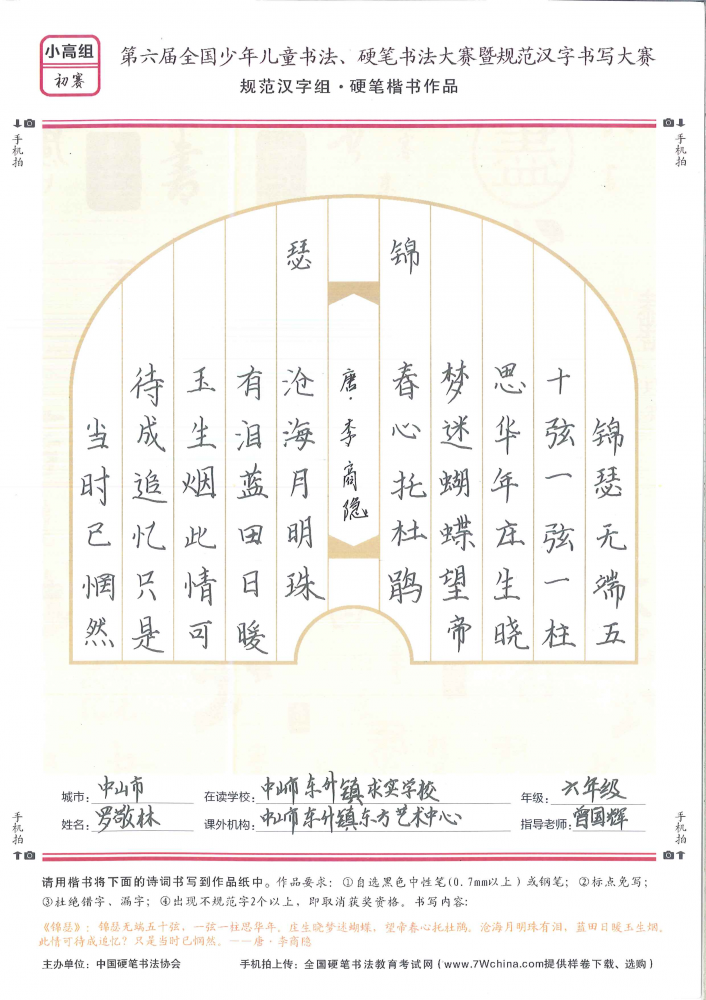 小高组
初赛
第六届全国少年儿童书法、硬笔书法大赛暨规范汉字书写大赛
规范汉字组·硬笔楷书作品
手机拍
手机拍
锦瑟
锦瑟无端五
十弦一弦一柱
思华年庄生晓
梦迷蝴蝶望帝
春心托杜鹃
唐·李商隐
沧海月明珠
有泪蓝田日暖
玉生烟此情可
待成追忆只是
当时已惘然
手机拍
手机拍
城市：中山市 在读学校：中山市东升镇求实学校 年级：六年级
姓名：罗敬林 课外机构：中山市东升镇东方艺术中心 指导老师：曾国辉
请用楷书将下面的诗词书写到作品纸中。作品要求：①自选黑色中性笔(0.7mm以上)或钢笔；②标点免写；
③杜绝错字、漏字；④出现不规范字2个以上，即取消获奖资格。书写内容：
《锦瑟》：锦瑟无端五十弦，一弦一柱思华年。庄生晓梦迷蝴蝶，望帝春心托杜鹃。沧海月明珠有泪，蓝田日暖玉生烟。
此情可待成追忆？只是当时已惘然。——唐·李商隐
主办单位：中国硬笔书法协会 手机拍上传：全国硬笔书法教育考试网（www.7Wchina.com提供样卷下载、选购）